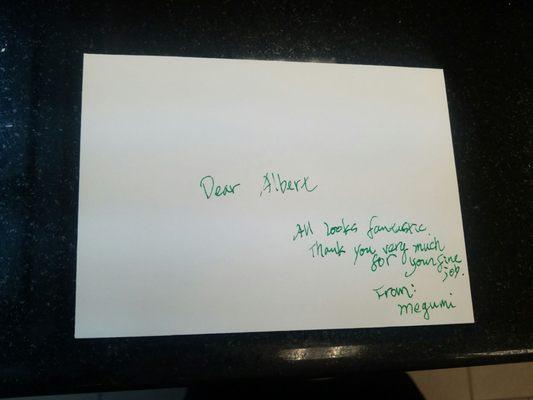 Dear Albert
All looks fantastic.
Thank you very much
for your fine
job.
From:
megumi